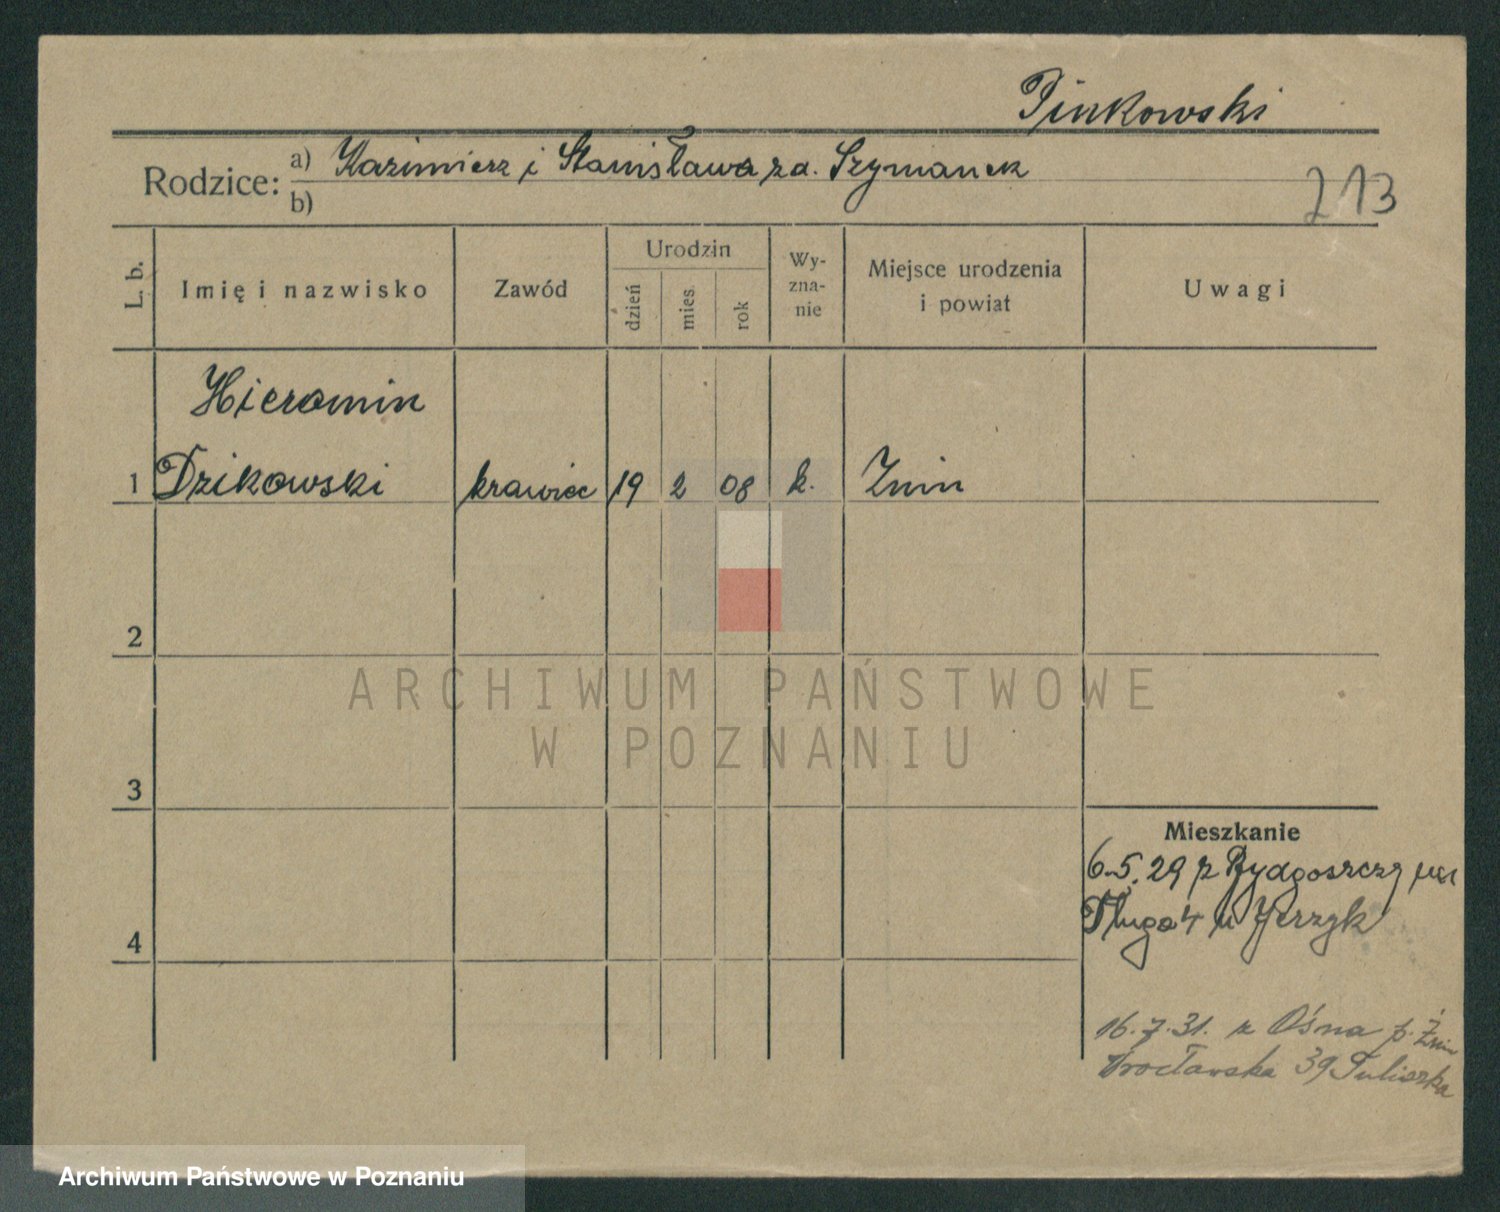 Pinkowski
Rodzice: a) Kazimierz i Stanisława z d. Szymanek
b)
213
L. b. Imię i nazwisko Zawód Urodzin dzień mies rok Wy-zna-nie Miejsce urodzenia i powiat Uwagi
Hieronim
1 Dzikowski krawiec 19 2 08 k. Żnin
2
ARCHIWUM PAŃSTWOWE
W POZNANIU
3
Mieszkanie
6.5.29 z Bydgoszczy
Długa 4 u Jerzyk
4
16.7.31. z Ośna p. Żnin
Wrocławska 39
Archiwum Państwowe w Poznaniu